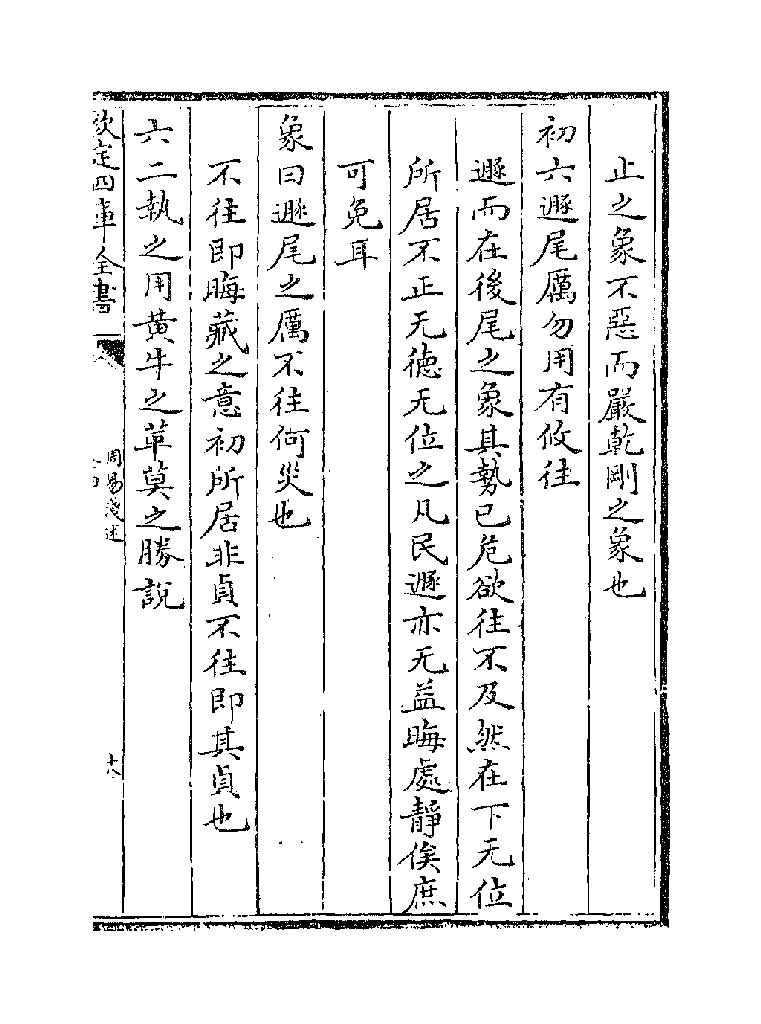 止之象不惡而嚴乾剛之象也
初六遯尾厲勿用有攸往
遯而在後尾之象其勢已危欲往不及然在下无位
所居不正无德无位之凡民遯亦无益晦處靜俟庶
可免耳
象曰遯尾之厲不往何災也
不往即晦藏之意初所居非貞不往即其貞也
六二執之用黃牛之革莫之勝說
欽定四庫全書
周易淺述
十八